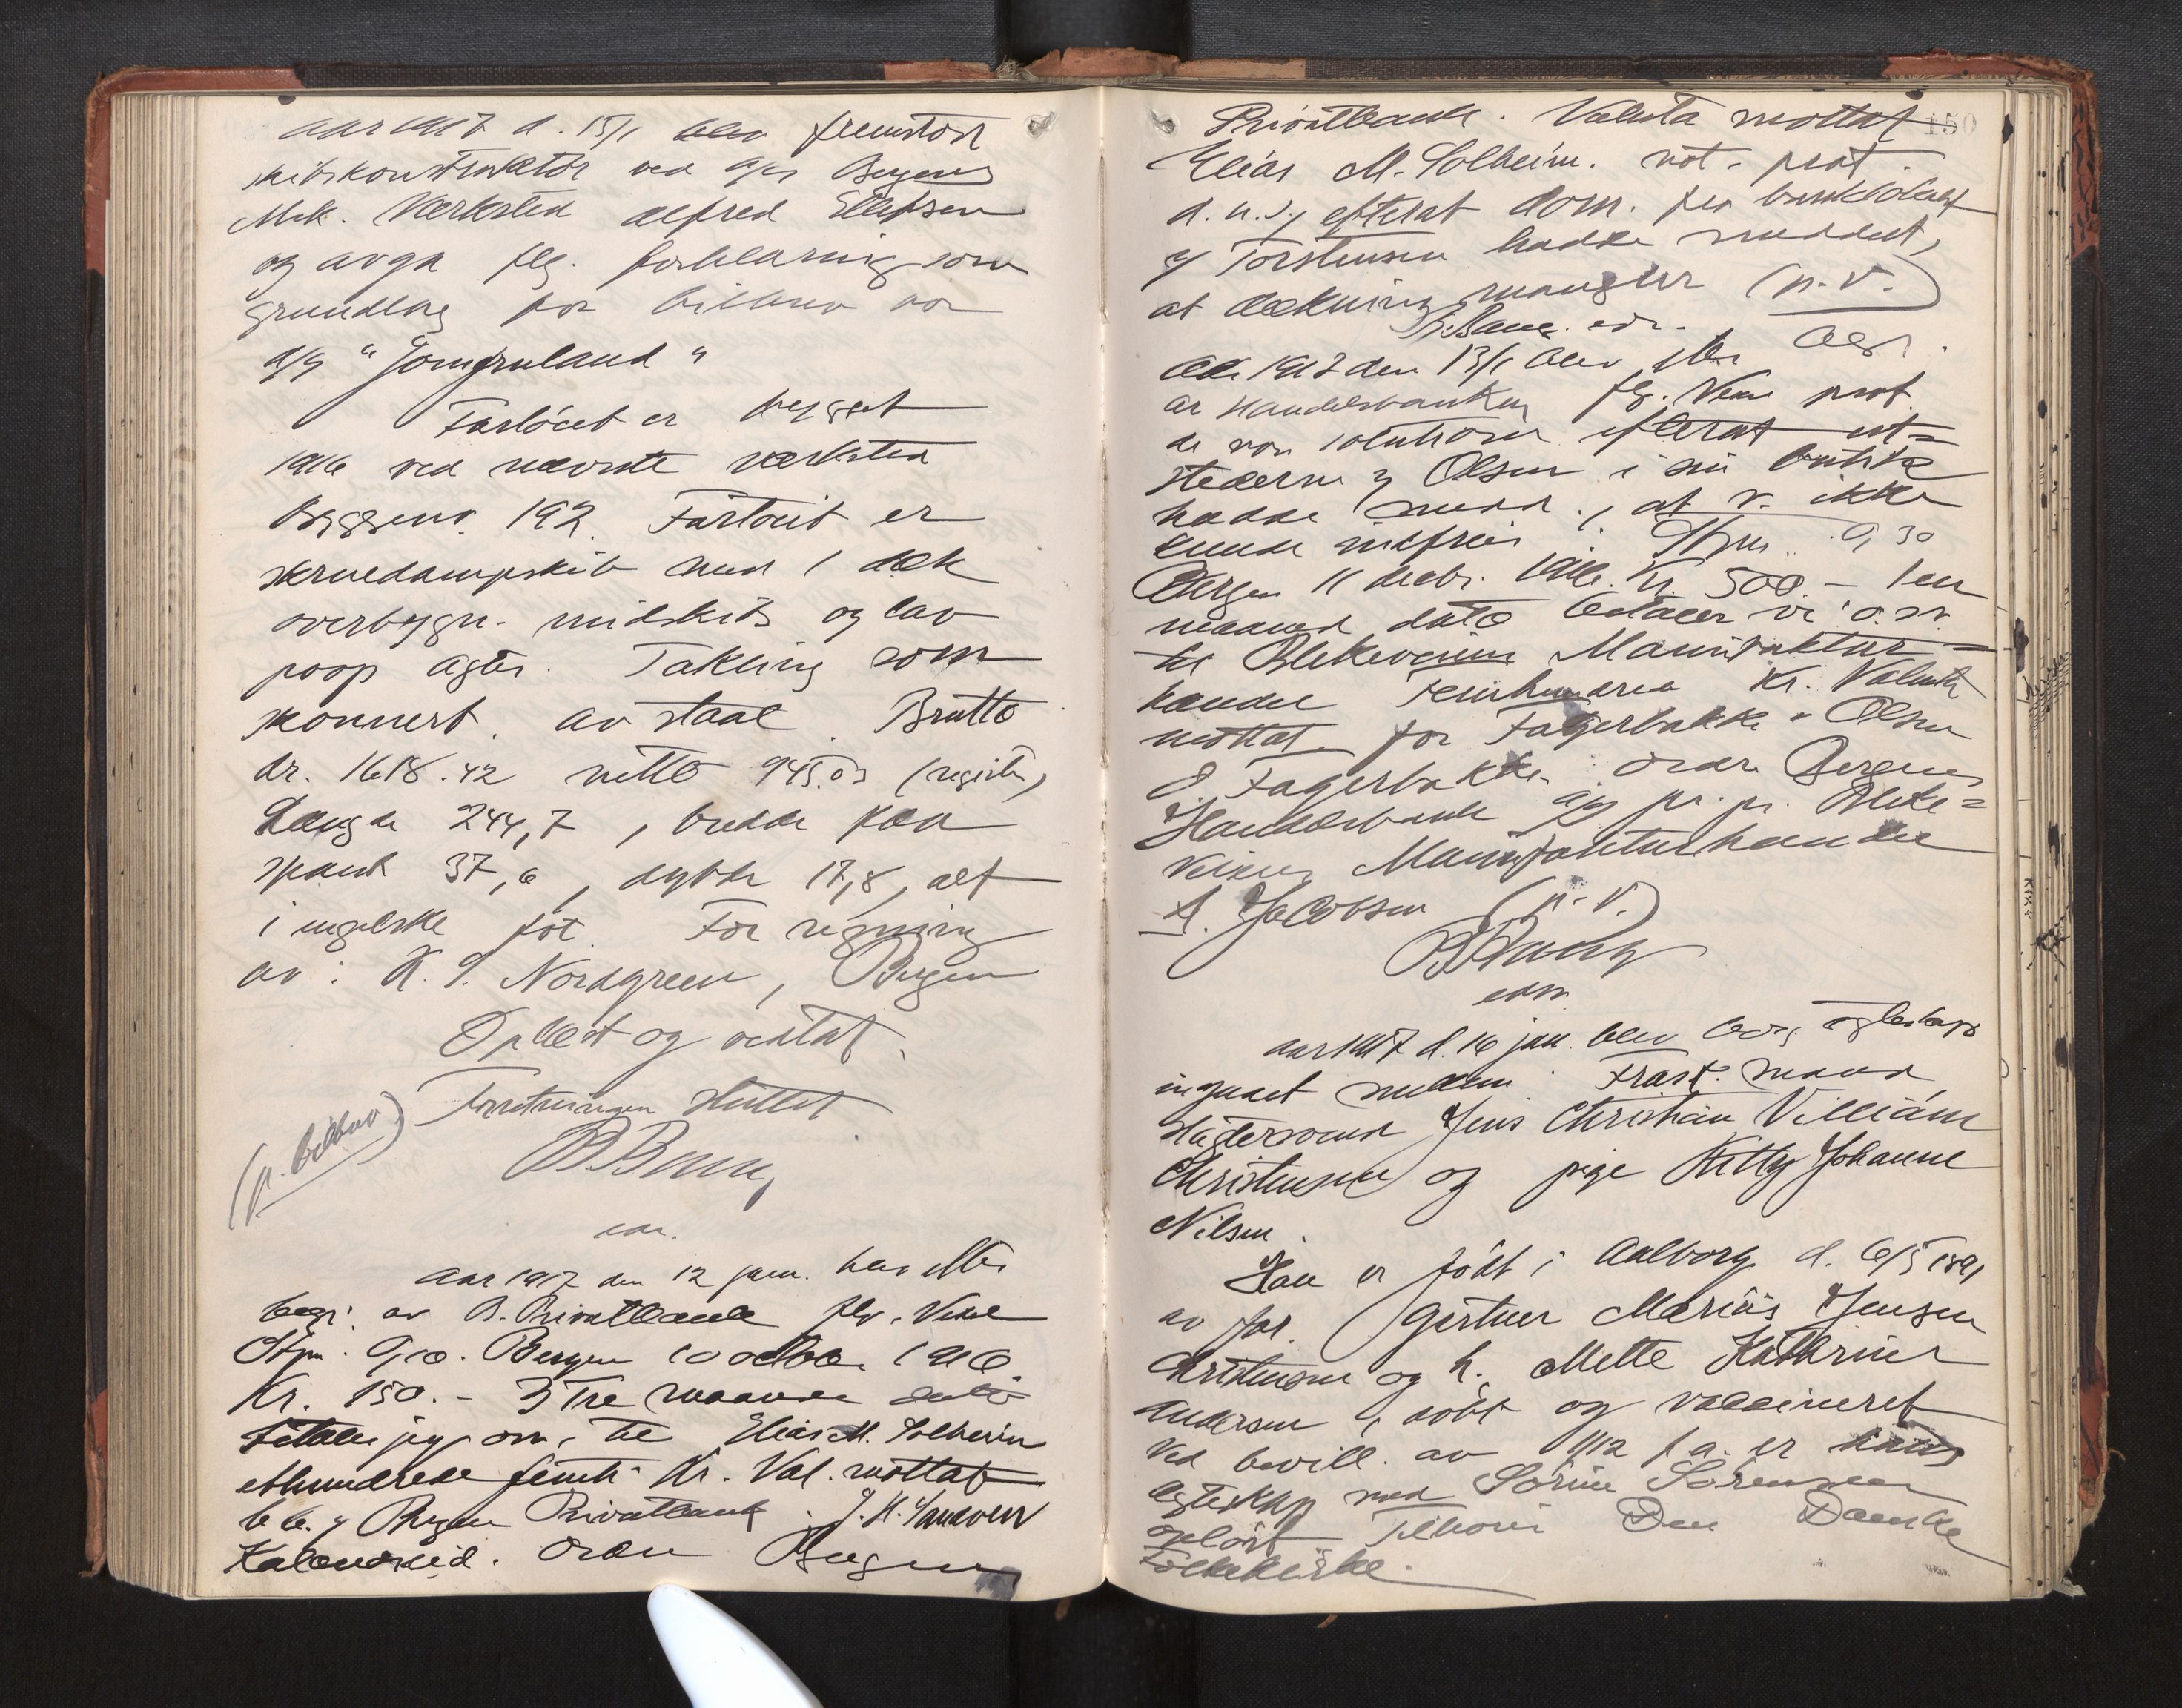 Aar 1917 d. 15/1 blev fremstod
skibskonstruktør ved A/S Bergens
Mek. Verksted Alfred Ellefsen
og avga flg. forklaring som
grundlag for bilbrev for
D/S "Jomfruland"
Fartöiet er bygget
1916 ved nævnte verksted
byggeno. 192. Fartöiet er
skruedampskib med 1 dæk
overbygn. midskibs og lav
poop agter. Takling som
skonnert. av staal. Brutto
dr. 1618.42 netto 945.03 (register)
Længde 244,7, bredde paa
spant 37,6, dybde 17,8, alt
i engelske fot. For regning
av: K. S. Nordgreen, Bergen
Oplæst og vedtat.
Forretningen sluttet
(p. bilbrev)
B. Bang
edv.
Aar 1917 den 12 jan. blev efter
begj. av B. Privatbank flg. Vexel
Stpm. 0,10. Bergen 10 octbr. 1916
Kr. 150.- 3 Tre maaneder dato
betaler jeg o.m. til Elias M. Solheim
ethundrede femti Kr. Val. mottat
Bergens Privatbank. J. H. Sandven
Kalandseid. Ordre Bergens
150
Privatbank. Valuta mottat
Elias M. Solheim. not. prot.
d. u. s., efterat dom. ved bankfuldm.
Torstensen hadde meddelt,
at dækning mangler (p. v.)
B. Bang. edv.
Aar 1917 den 13/1 blev efter begj.
av Handelsbanken flg. Vexel prot.
de non solutione efterat ut-
stederne ved Olsen i sin butik
hadde medd., at v. ikke
kunde indfries. Stpm. 0,30
Bergen 11 decbr. 1916. Kr. 500.- 1 en
maaned dato betaler vi o.m.
til Blekeveiens Manufaktur-
handel femhundrede Kr. Valuta
mottat. for Fagerbakke & Olsen
O Fagerbakke. Ordre Bergens
Handelsbank A/S pr. pr. Bleke-
veiens Manufakturhandel
A. Jacobsen (p. v.)
B Bang
edv
Aar 1917 d. 16 jan. blev borg. egteskap
ingaaet mellem: Frask. mand
slagtersvend Jens Christian Villiam
Christensen og pige Kitty Johanne
Nilsen.
Han er født i Aalborg d. 6/5 1891
av for. Gartner Marius Jensen
Christensen og h. Mette Kathrine
Andersen, døbt og vaccineret
Ved bevill. av 1/12 f. a. er hans
egteskap med Sørine Sørensen
opløst. Tilhører Den Danske
Folkekirke.